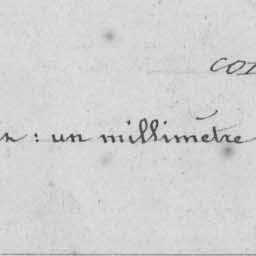 : un millimètre